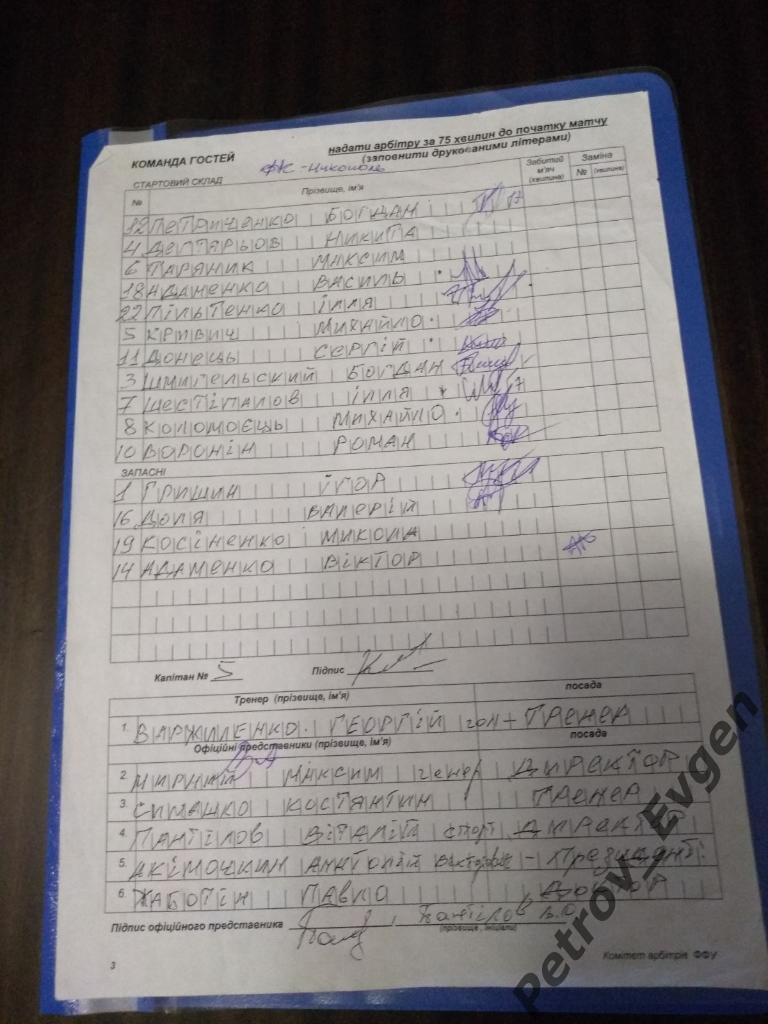 КОМАНДА ГОСТЕЙ
надати арбітру за 75 хвилин до початку матчу
(заповнити друкованими літерами)
ФК-Нікополь
СТАРТОВИЙ СКЛАД
№ Прізвище, ім'я Забитий м'яч (хвилина) Заміна № (хвилина)
12 ПЕТРИЧЕНКО БОГДАН
4 ДЕГТАРЬОВ НИКИТА
6 ТАРЯНИК МАКСИМ
18 АДАМЕНКО ВАСИЛЬ
22 ПІЛЬТЕНКО ІЛЛЯ
5 КРИВИЧ МИХАЙЛО
11 ДОНЕЦЬ СЕРГІЙ
3 ШМИГЕЛЬСКИЙ БОГДАН
7 ШЕСТІПАЛОВ ІЛЛЯ
8 КОЛОМОЄЦЬ МИХАЙЛО
10 ВОРОНІН РОМАН
ЗАПАСНІ
1 ГРИШИН ІГОР
16 ДОЛЯ ВАЛЕРІЙ
19 КОСІНЕНКО МИКОЛА
14 АДАМЕНКО ВІКТОР
Капітан № 5 Підпис
Тренер (прізвище, ім'я) посада
1. ВАРЖИЛЕНКО ГЕОРГІЙ гол ТРЕНЕР
Офіційні представники (прізвище, ім'я) посада
2. МИРНИЙ МАКСИМ генер ДИРЕКТОР
3. СИМАШКО КОСТЯНТИН ТРЕНЕР
4. ПАНТІЛОВ ВІТАЛІЙ спорт ДИРЕКТОР
5. АКІМОЧКИН АНАТОЛІЙ - Президент
6. ЖАБОТІН ПАВЛО ДОКТОР
Підпис офіційного представника Пантілов В.О.
(прізвище, ініціали)
3 Комітет арбітрів ФФУ
Petrov_Evgen